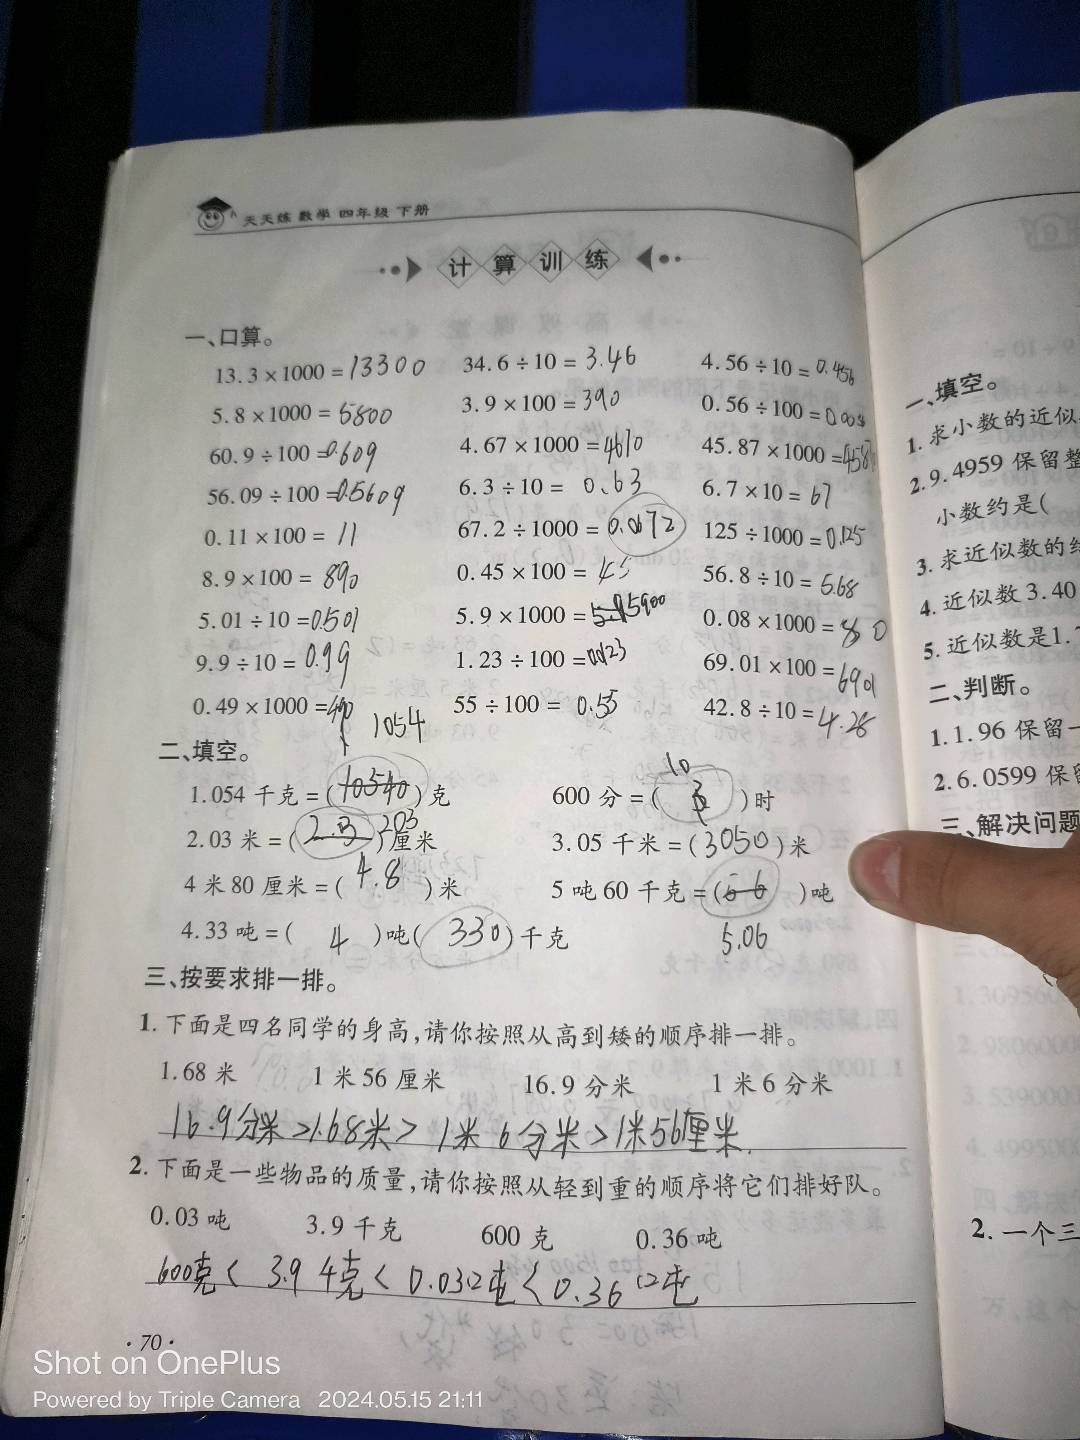 天天练 数学 四年级 下册
计算训练
一、口算。
13.3×1000=13300 34.6÷10=3.46 4.56÷10=0.456
5.8×1000=5800 3.9×100=390 0.56÷100=
60.9÷100=0.609 4.67×1000=4670 45.87×1000=
56.09÷100=0.5609 6.3÷10=0.63 6.7×10=67
0.11×100=11 67.2÷1000=0.0672 125÷1000=0.125
8.9×100=890 0.45×100=45 56.8÷10=5.68
5.01÷10=0.501 5.9×1000=5900 0.08×1000=80
9.9÷10=0.99 1.23÷100=0.0123 69.01×100=6901
0.49×1000=490 55÷100=0.55 42.8÷10=4.28
1054
二、填空。
10
1.054千克=(10540)克 600分=( )时
2.03米=( 203)厘米 3.05千米=(3050)米
4米80厘米=(4.8)米 5吨60千克=(5.6)吨
4.33吨=(4)吨(330)千克 5.06
三、按要求排一排。
1.下面是四名同学的身高,请你按照从高到矮的顺序排一排。
1.68米 1米56厘米 16.9分米 1米6分米
16.9分米>1.68米>1米6分米>1米56厘米.
2.下面是一些物品的质量,请你按照从轻到重的顺序将它们排好队。
0.03吨 3.9千克 600克 0.36吨
600克<3.9千克<0.03吨<0.36吨
·70·
一、填空。
1.求小数的近似
2.9.4959保留整
小数约是(
3.求近似数的结
4.近似数3.40
5.近似数是1.
二、判断。
1.1.96保留一
2.6.0599保
三、解决问题
2.一个三
Shot on OnePlus
Powered by Triple Camera 2024.05.15 21:11